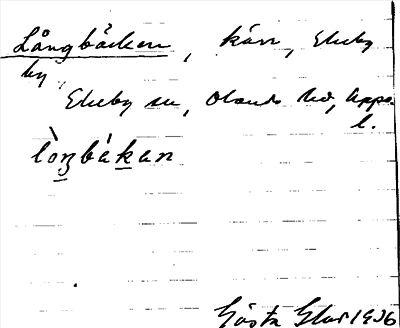 Långbäcken, kärr, Ekeby
by,
Ekeby sn, Olands hd, Upps.
l.
lòŋbákan
Gösta 1936